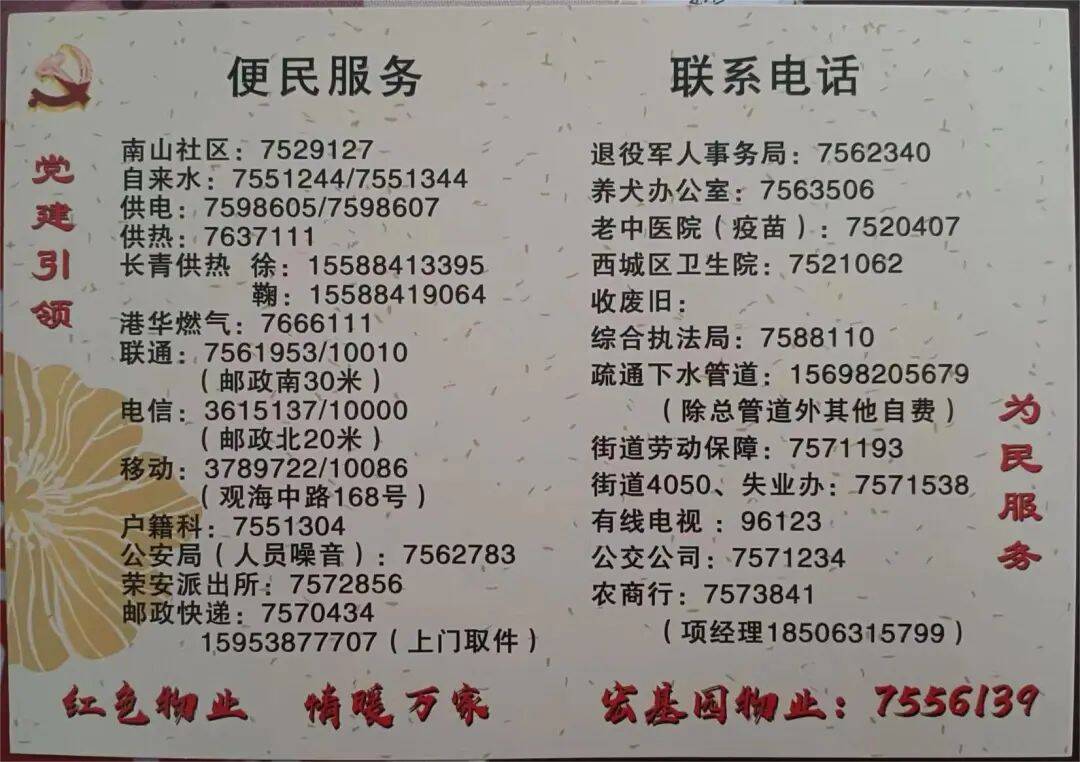 便民服务
联系电话
党建引领
南山社区：7529127
自来水：7551244/7551344
供电：7598605/7598607
供热：7637111
长青供热 徐：15588413395
鞠：15588419064
港华燃气：7666111
联通：7561953/10010
（邮政南30米）
电信：3615137/10000
（邮政北20米）
移动：3789722/10086
（观海中路168号）
户籍科：7551304
公安局（人员噪音）：7562783
荣安派出所：7572856
邮政快递：7570434
15953877707（上门取件）
退役军人事务局：7562340
养犬办公室：7563506
老中医院（疫苗）：7520407
西城区卫生院：7521062
收废旧：
综合执法局：7588110
疏通下水管道：15698205679
（除总管道外其他自费）
街道劳动保障：7571193
街道4050、失业办：7571538
有线电视：96123
公交公司：7571234
农商行：7573841
（项经理18506315799）
为民服务
红色物业 情暖万家
宏基园物业：7556139